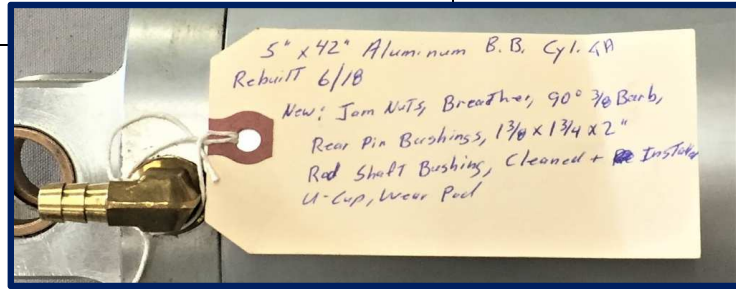 5" x 42" Aluminum B.B. Cyl. GA
Rebuilt 6/18
New: Jam Nuts, Breather, 90° 3/8 Barb,
Rear Pin Bushings, 1 3/8 x 1 3/4 x 2"
Rod Shaft Bushing, Cleaned +
U-Cup, Wear Pad